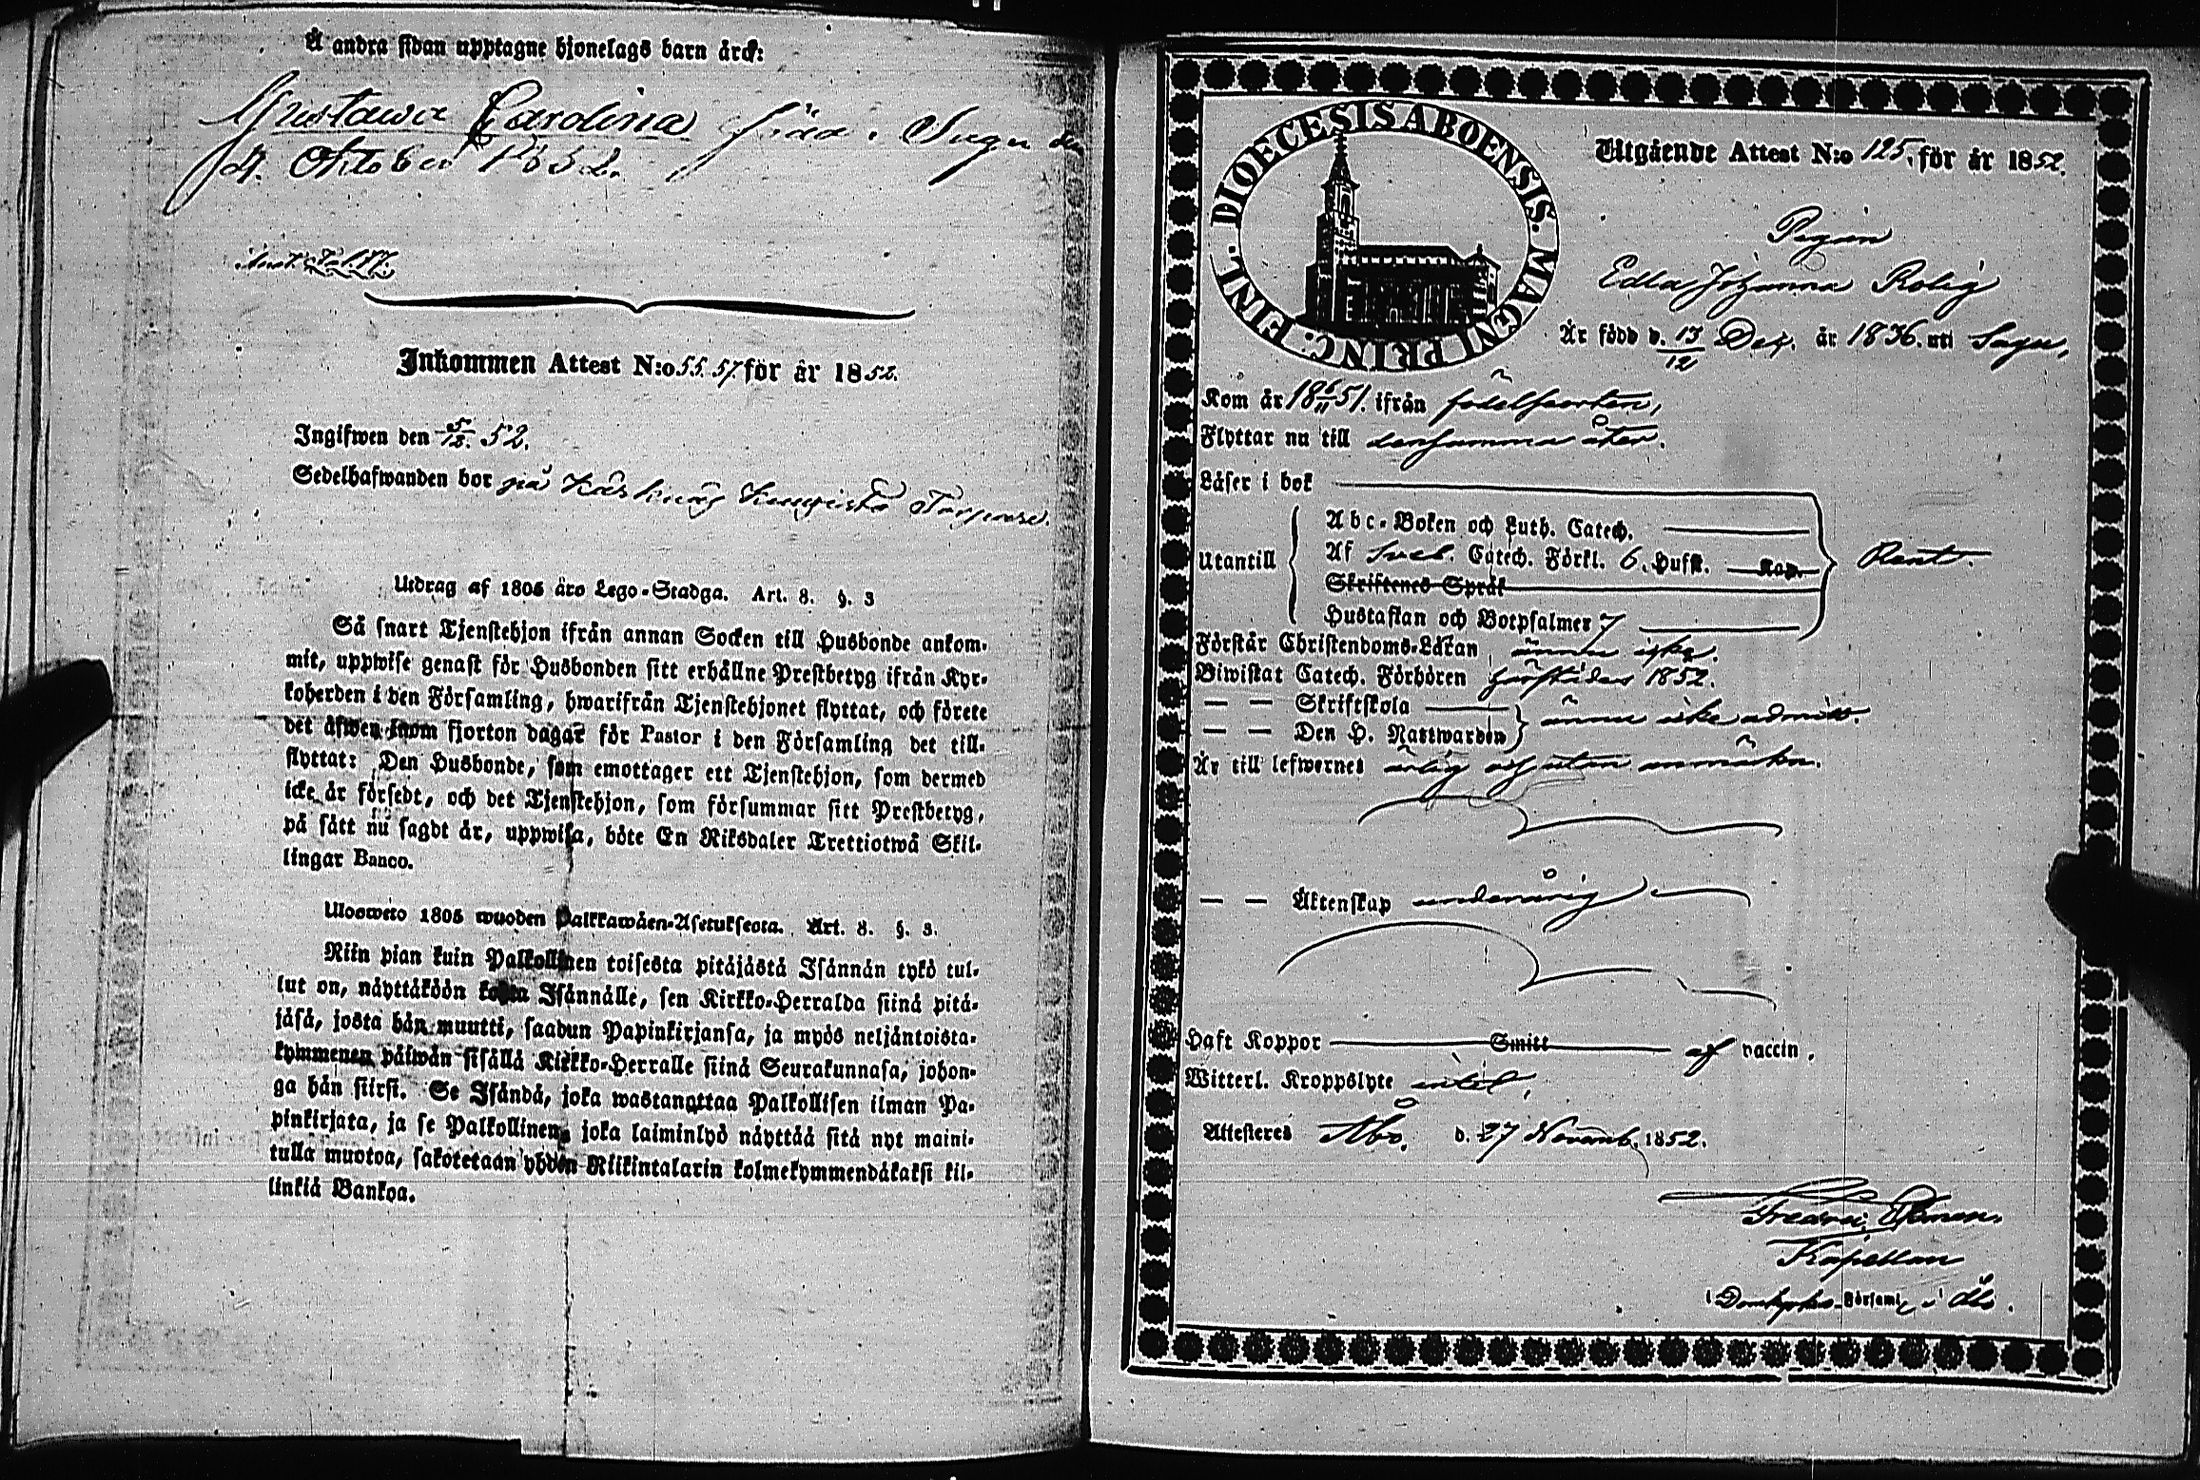 Å andra sidan upptagne hjonelags barn äro:
Gustawa Carolina född i Sagu den
4. Oktober 1852.
Inkommen Attest N:o 55. 57. för år 1852.
Ingifwen den 5/12. 52.
Sedelhafwanden bor på Torpare.
Utdrag af 1805 års Lego-Stadga. Art. 8. §. 3
Så snart Tjenstehjon ifrån annan Socken till Husbonde ankom-
mit, uppwise genast för Husbonden sitt erhållne Prestbetyg ifrån Kyr-
koherden i den Församling, hwarifrån Tjenstehjonet flyttat, och förete
det äfwen inom fjorton dagar för Pastor i den Församling det till-
flyttat: Den Husbonde, som emottager ett Tjenstehjon, som dermed
icke är försedt, och det Tjenstehjon, som försummar sitt Prestbetyg,
på sätt nu sagdt är, uppwisa, böte En Riksdaler Trettiotwå Skil-
lingar Banco.
Ulosweto 1805 wuoden Palkkawäen-Asetuksesta. Art. 8. §. 3.
Niin pian kuin Palkollinen toisesta pitäjästä Isännän tykö tul-
lut on, näyttäköön kohta Isännälle, sen Kirkko-Herralda siinä pitä-
jäsä, josta hän muutti, saadun Papinkirjansa, ja myös neljäntoista-
kymmenen päiwän sisällä Kirkko-Herralle siinä Seurakunnasa, johon-
ga hän siirsi. Se Isändä, joka wastanottaa Palkollisen ilman Pa-
pinkirjata, ja se Palkollinen, joka laiminlyö näyttää sitä nyt maini-
tulla muotoa, sakotetaan yhden Riikintalarin kolmekymmendäkaksi kil-
linkiä Bankoa.
DIOECESIS ABOENSIS. MAGNI PRINC: FINL.
Utgående Attest N:o 125. för år 1852.
Pigan
Edla Johanna Rolig
Är född d. 13/12 Dec. år 1836. uti Sagu,
Kom år 18 6/11 51. ifrån födelseorten,
Flyttar nu till densamma åter.
Läser i bok
Utantill
Abc-Boken och Luth. Catech.
Af Sveb. Catech. Förkl. 6. Hufst. Kap.
Skriftenes Språk
Hustaflan och Botpsalmer 7
Rent.
Förstår Christendoms-Läran ännu icke.
Biwistat Catech. Förhören 1852.
— — Skriftskola
— — Den H. Nattwarden
ännu icke admitt.
Är till lefwernet ärlig och utan anmärkn.
— — Äktenskap underårig
Haft Koppor Smitt af vaccin.
Witterl. Kroppslyte intet.
Attesteres Åbo. d. 27 Novemb. 1852.
Kapellan
i Domkyrko-Församl. i Åbo.